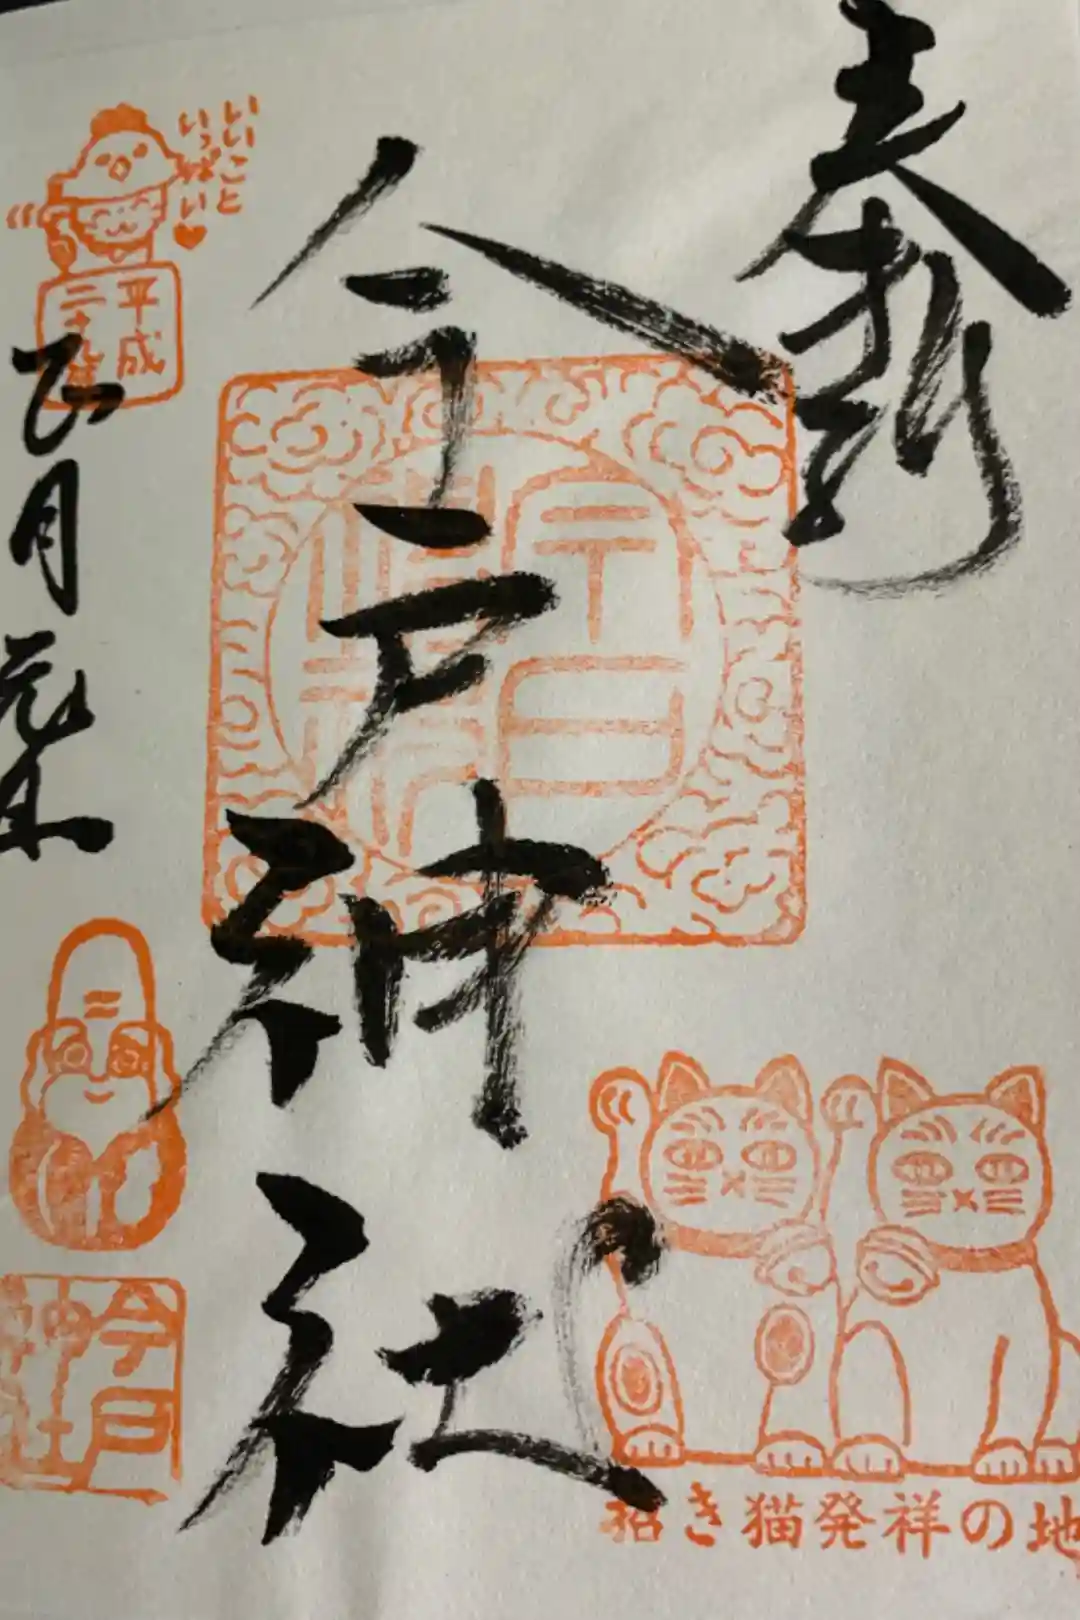 奉拝
今戸神社
今戸神社
いいこと
いっぱい♥
平成
二十九年
正月元旦
今戸
神社
招き猫発祥の地